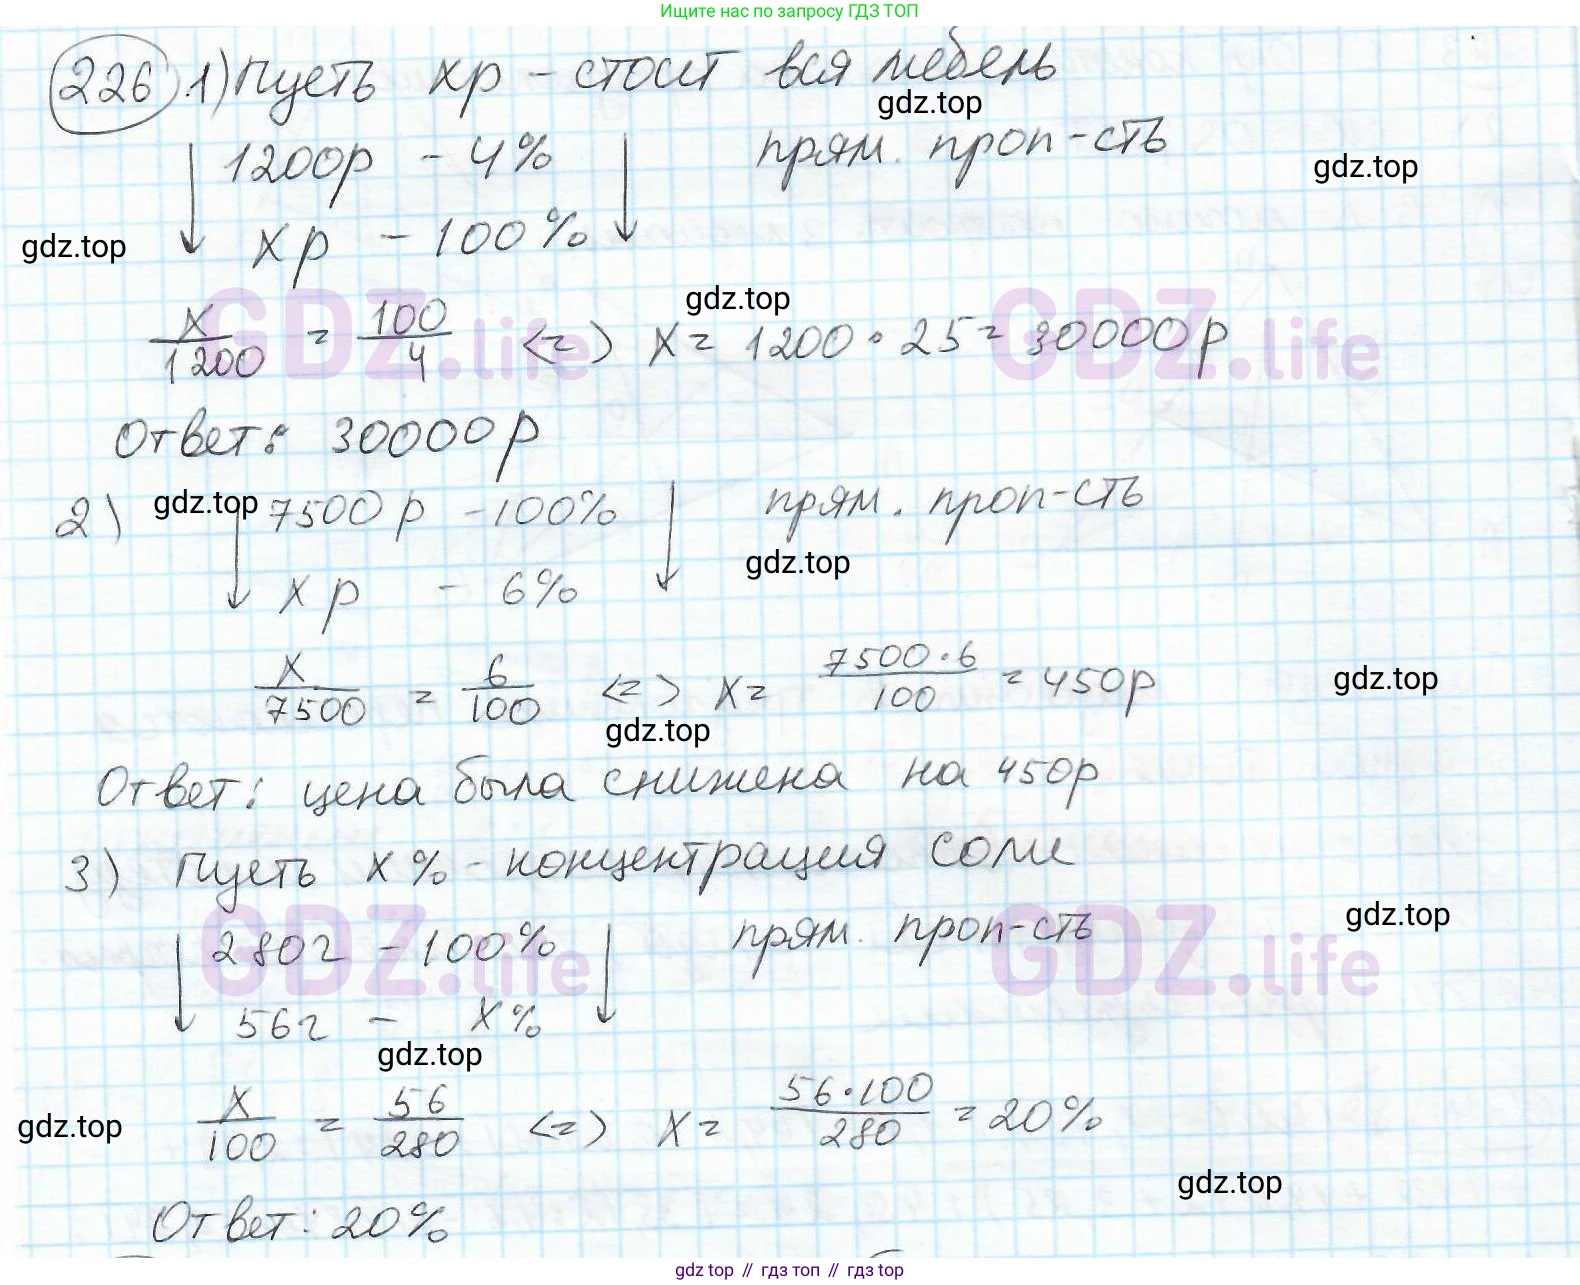 Ищите нас по запросу ГДЗ ТОП
226 1) Пусть xр - стоит вся мебель
gdz.top
1200р - 4% прям. проп-сть
gdz.top
gdz.top xр - 100%
gdz.top
GDZ.life GDZ.life
x/1200 = 100/4 <=> x = 1200 • 25 = 30000р
Ответ: 30000р
2) gdz.top 7500р - 100% прям. проп-сть
gdz.top
xр - 6%
x/7500 = 6/100 <=> x = 7500•6/100 = 450р gdz.top
gdz.top
Ответ: цена была снижена на 450р
3) Пусть x% - концентрация соли
gdz.top
GDZ.life GDZ.life
280г - 100% прям. проп-сть
56г - x%
gdz.top
gdz.top x/100 = 56/280 <=> x = 56•100/280 = 20%
gdz.top
Ответ: 20%
gdz top // гдз топ // гдз top